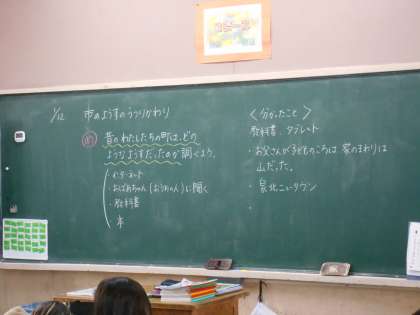 1/12 市のようすのうつりかわり
め 昔のわたしたちの町は、どの
ようなようすだったのか調べよう。
・インターネット
・おばあちゃん(おじいちゃん)に聞く
・教科書
本
<分かったこと>
教科書、タブレット
・お父さんが子どものころは家のまわりは
山だった。
・泉北ニュータウン
・